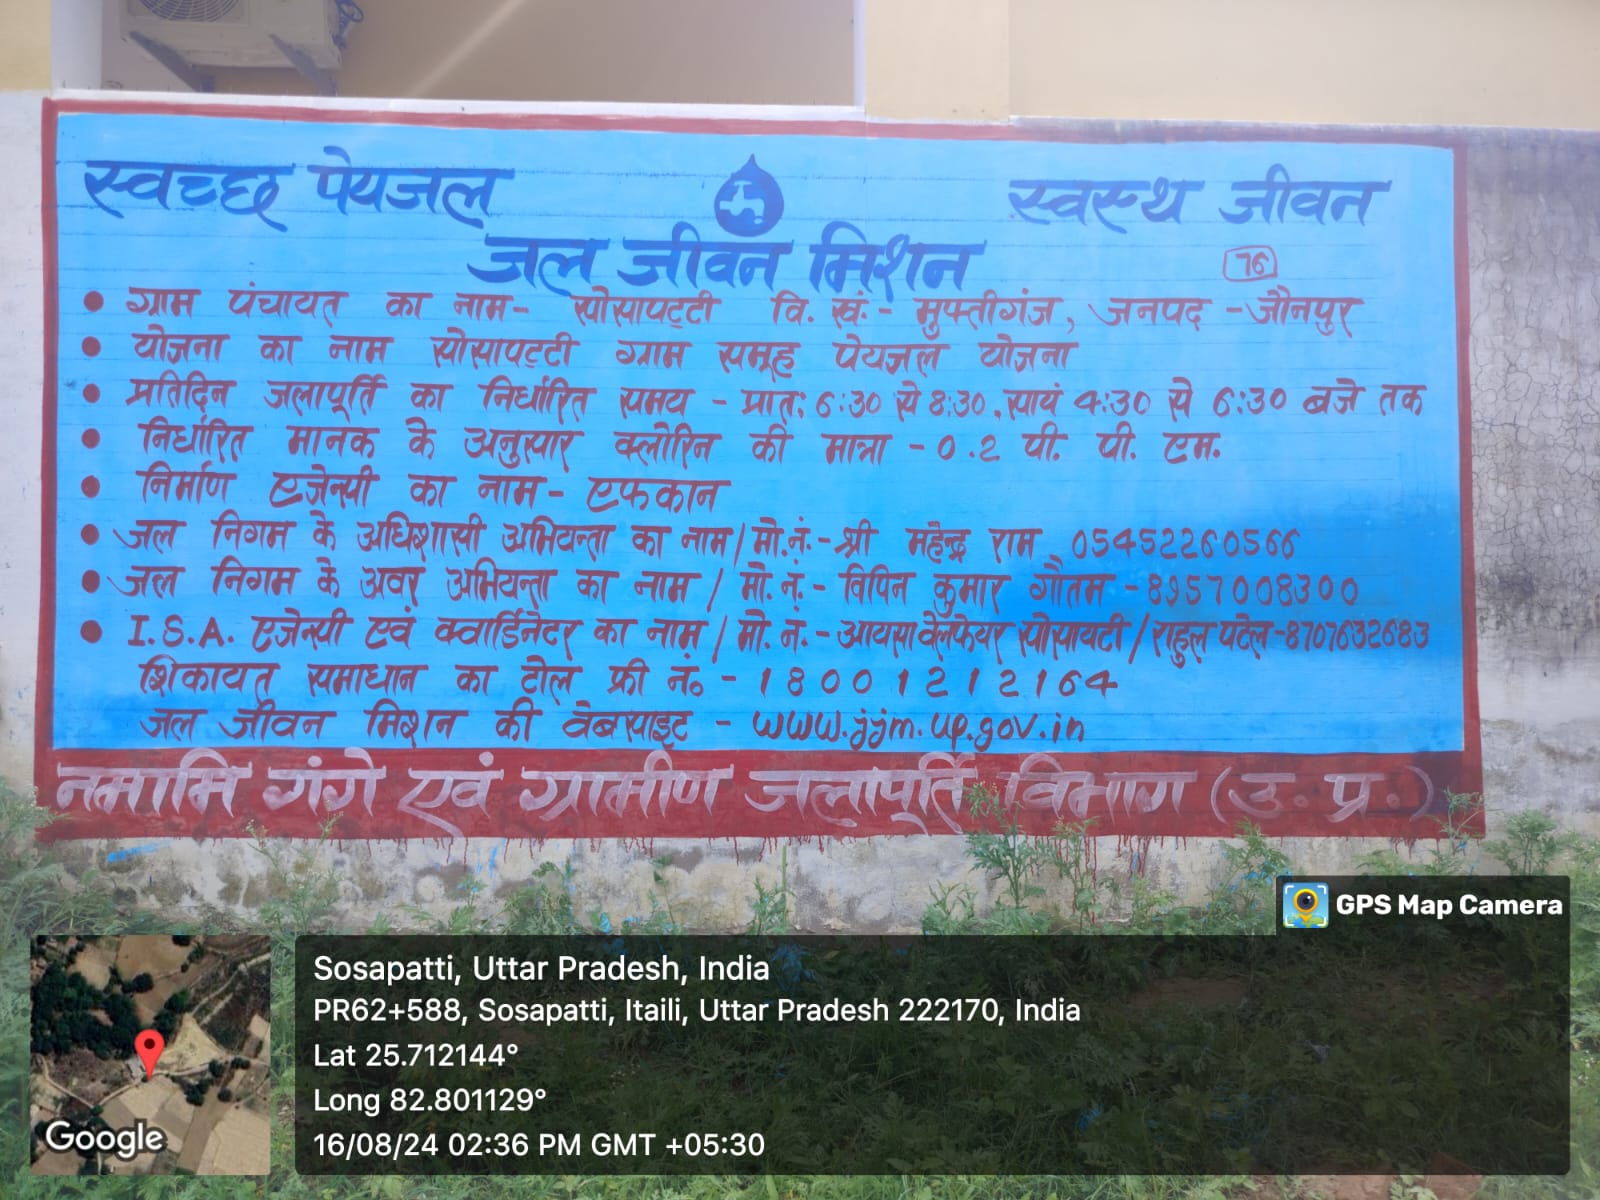 स्वच्छ पेयजल स्वस्थ जीवन
जल जीवन मिशन
76
• ग्राम पंचायत का नाम- सोसापट्टी वि. खं.- मुफ्तीगंज, जनपद -जौनपुर
• योजना का नाम सोसापट्टी ग्राम समूह पेयजल योजना
• प्रतिदिन जलापूर्ति का निर्धारित समय - प्रात: 6:30 से 8:30, सायं 4:30 से 6:30 बजे तक
• निर्धारित मानक के अनुसार क्लोरिन की मात्रा - 0.2 पी. पी. एम.
• निर्माण एजेन्सी का नाम- एफकान
• जल निगम के अधिशासी अभियन्ता का नाम/मो.नं.-श्री महेन्द्र राम 05452260566
• जल निगम के अवर अभियन्ता का नाम / मो.नं.- विपिन कुमार गौतम -8957008300
• I.S.A. एजेन्सी एवं क्वार्डिनेटर का नाम/ मो. नं.- आयसा वेलफेयर सोसायटी/राहुल पटेल-8707632683
शिकायत समाधान का टोल फ्री नं० - 18001212164
जल जीवन मिशन की वेबसाइट - www.jjm.up.gov.in
नमामि गंगे एवं ग्रामीण जलापूर्ति विभाग (उ. प्र.)
GPS Map Camera
Sosapatti, Uttar Pradesh, India
PR62+588, Sosapatti, Itaili, Uttar Pradesh 222170, India
Lat 25.712144°
Long 82.801129°
16/08/24 02:36 PM GMT +05:30
Google